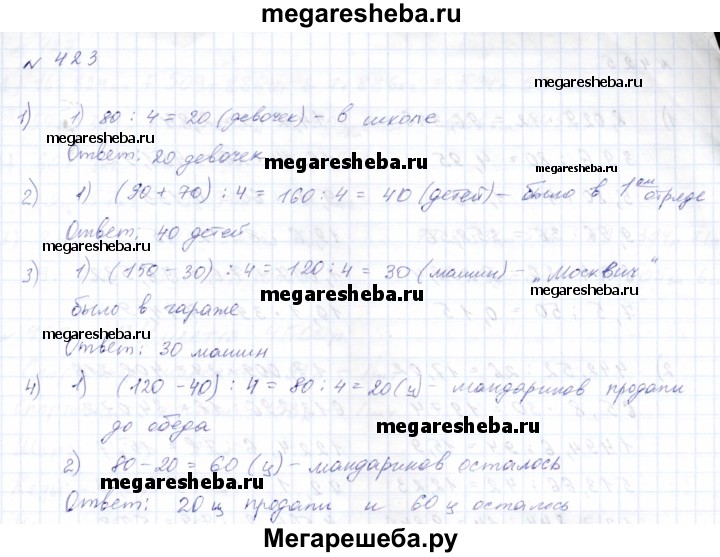 megaresheba.ru
№ 423
megaresheba.ru
1) 1) 80 : 4 = 20 (девочек) - в школе
megaresheba.ru
Ответ: 20 девочек
megaresheba.ru
megaresheba.ru
2) 1) (90 + 70) : 4 = 160 : 4 = 40 (детей) - было в 1ом отряде
Ответ: 40 детей
megaresheba.ru
megaresheba.ru
3) 1) (150 - 30) : 4 = 120 : 4 = 30 (машин) - „Москвич“
megaresheba.ru
было в гараже
megaresheba.ru
Ответ: 30 машин
4) 1) (120 - 40) : 4 = 80 : 4 = 20 (ц) - мандаринов продали
до обеда
megaresheba.ru
megaresheba.ru
2) 80 - 20 = 60 (ц) - мандаринов осталось
megaresheba.ru
Ответ: 20 ц продали и 60 ц осталось
Мегарешеба.ру